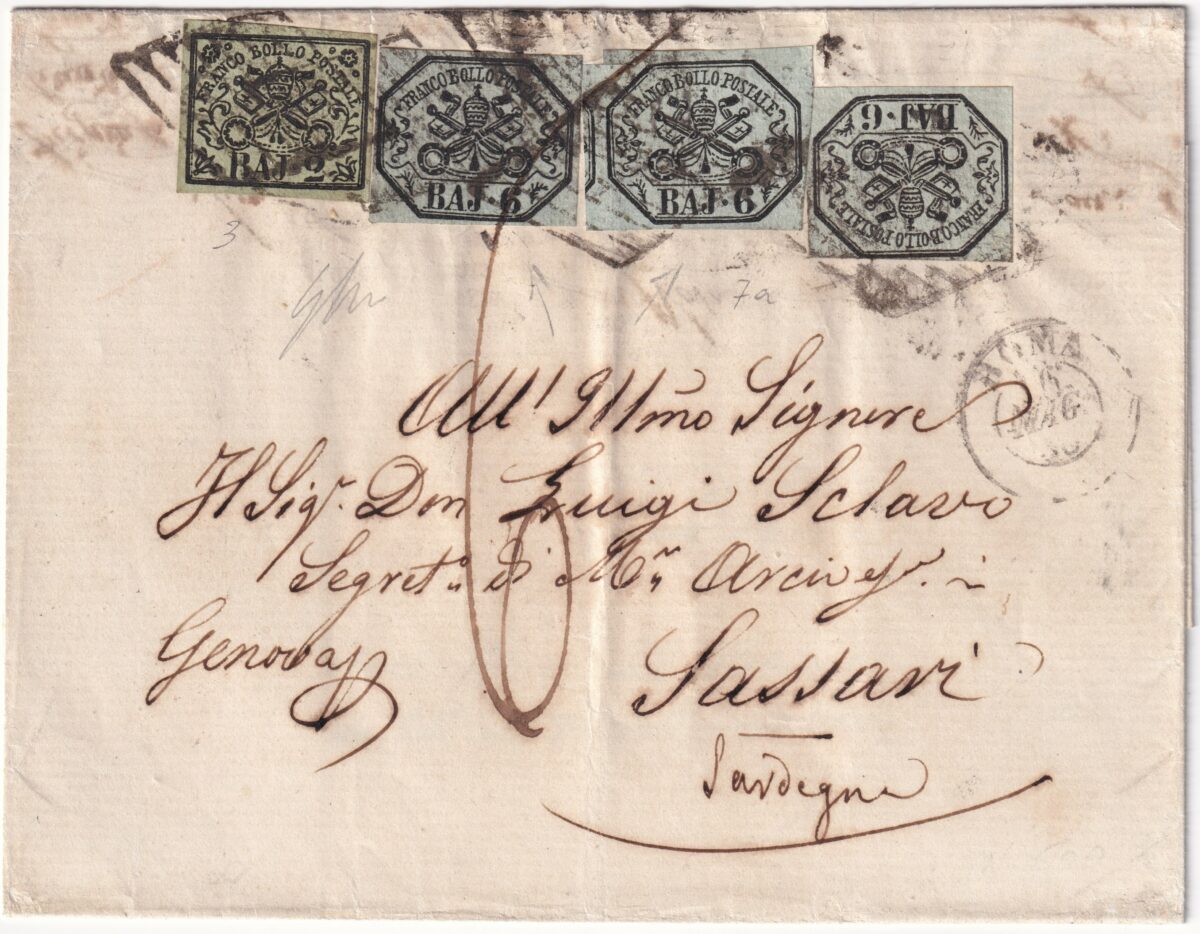 FRANCO BOLLO POSTALE
BAJ·2
FRANCO BOLLO POSTALE
BAJ·6
FRANCO BOLLO POSTALE
BAJ·6
BAJ·6
FRANCO BOLLO POSTALE
3
7a
ROMA
MAG
All' Illmo Signore
Il Sig.r Don Luigi Sclavo
Segret.o di
Genova
Sassari
Sardegna